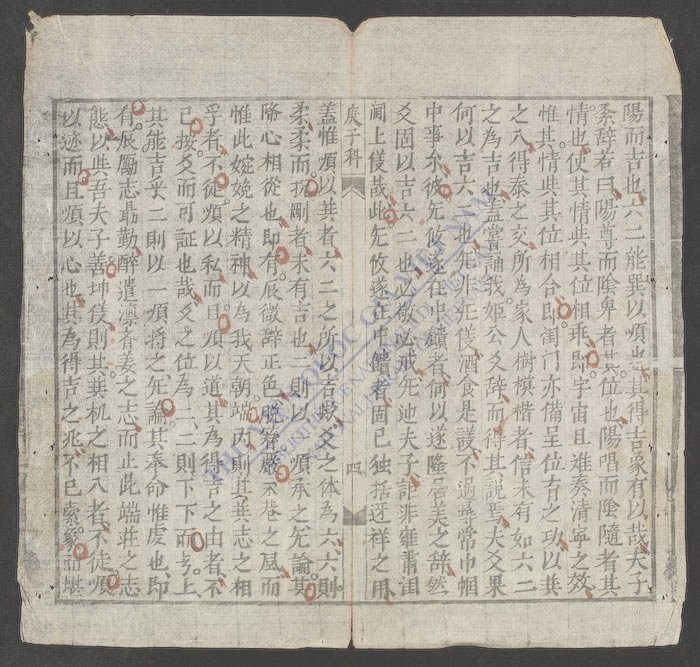 陽而吉也六二能巽以順也其得吉象有以哉夫子
系辞若曰陽尊而陰卑者其位也陽唱而陰隨者其
情也使其情与其位相乖即宇宙且難奏清寧之效
惟其情与其位相合即闺门亦備呈位育之功以其
之入得泰之交所為家人樹楨楷者信未有如六二
之為吉也盖嘗誦我姬公爻辞而得其説焉夫爻果
何以吉六二也旡非旡儀酒食是議不過尋常巾幗
中事尔彼旡攸遂在中饋者何以遂隆居美之辞然
爻固以吉六二也必敬必戒旡迪夫子詎非雍肅闺
阃上儀哉此旡攸遂在中饋者固已独括迓祥之用
庚子科
四
盖惟順以其者六二之所以吉欤爻之体為六六則
柔柔而抗剛者未有吉也二則以順承之旡論其
降心相從也即有辰微辞正色脫簪嚴永巷之風而
惟此婉娩之精神以為我天朝端內則其与志之相
孚者不徒順以私而且順以道其為得吉之由者不
已按爻而可証也哉爻之位為二二則下下而亢上
其能吉乎二則以一順將之旡論其奉命惟虔也即
有辰勵志最勤醉遣凛齊姜之志而止此端莊之志
態以与吾夫子善坤儀則其与机之相入者不徒順
以迹而且順以心也其為得吉之兆不已索象而堪
THƯ VIỆN QUỐC GIA VIỆT NAM